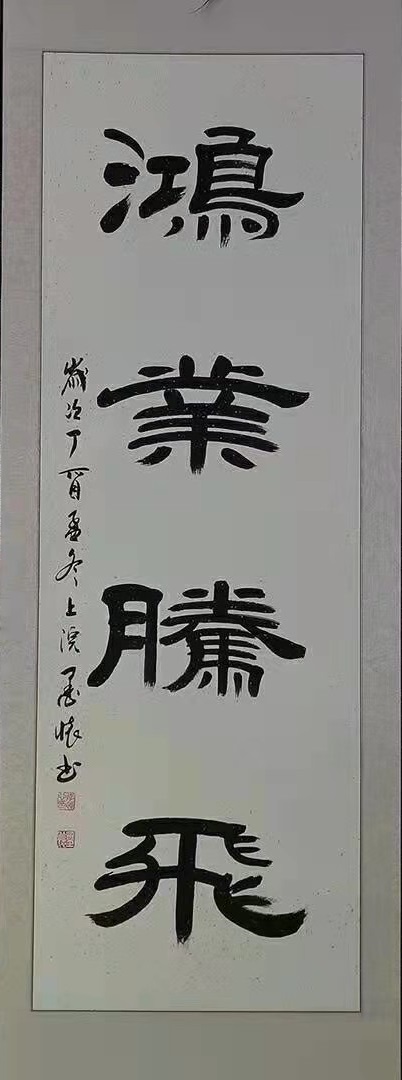 鴻業騰飛
歲次丁酉孟冬上浣墨懷書